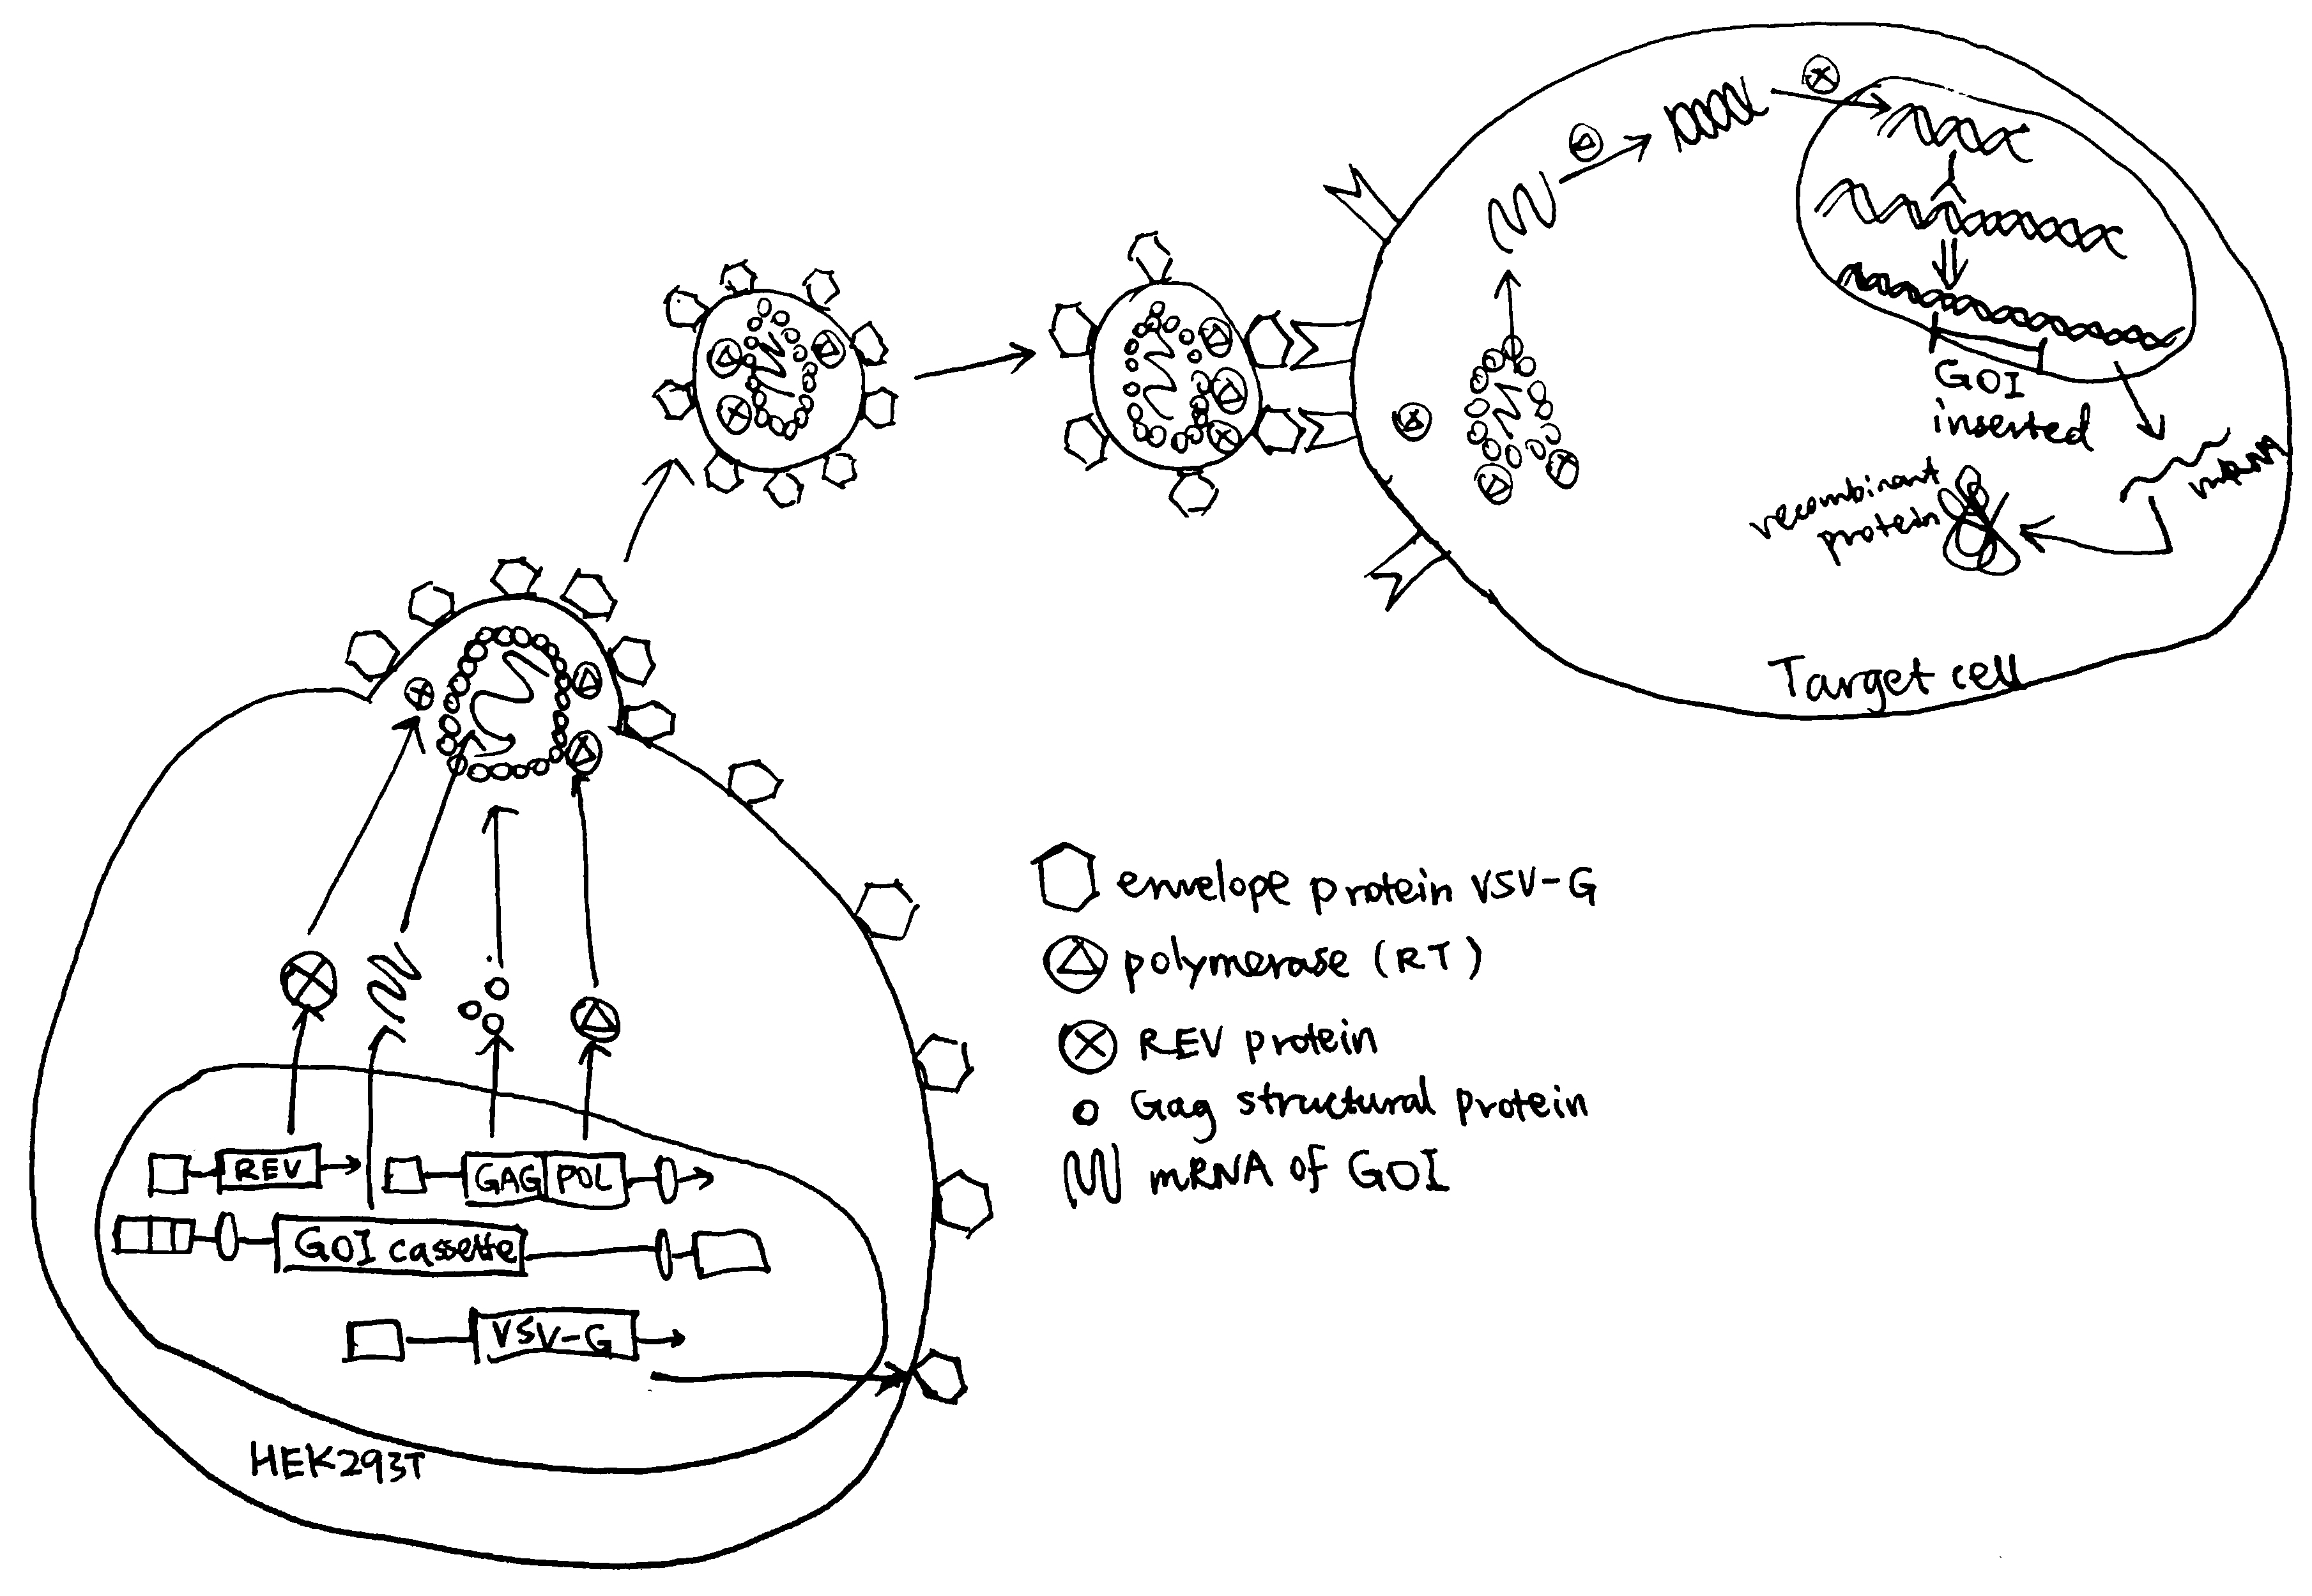 GOI
inserted
recombinant
protein
mRNA
Target cell
envelope protein VSV-G
polymerase (RT)
REV protein
Gag structural protein
mRNA of GOI
REV
GAG POL
GOI cassette
VSV-G
HEK293T